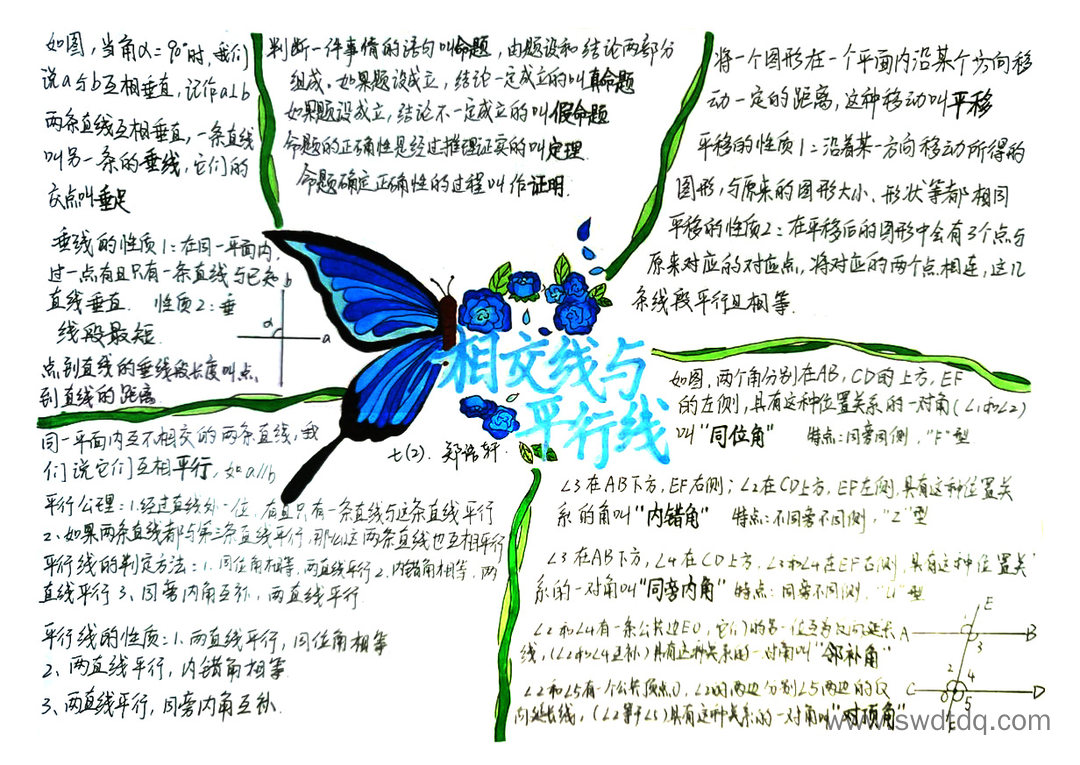 如图，当角α=90°时，我们
说a与b互相垂直，记作a⊥b
两条直线互相垂直，一条直线
叫另一条的垂线，它们的
交点叫垂足
垂线的性质1：在同一平面内，
过一点有且只有一条直线与已知
直线垂直. 性质2：垂
线段最短.
点到直线的垂线段长度叫点
到直线的距离
b
α
a
判断一件事情的语句叫命题，由题设和结论两部分
组成。如果题设成立，结论一定成立的叫真命题
如果题设成立，结论不一定成立的叫假命题
命题的正确性是经过推理证实的叫定理.
命题确定正确性的过程叫作证明.
将一个图形在一个平面内沿某个方向移
动一定的距离，这种移动叫平移
平移的性质1：沿着某一方向移动所得的
图形，与原来的图形大小、形状等都相同
平移的性质2：在平移后的图形中会有3个点与
原来对应的对应点，将对应的两个点相连，这几
条线段平行且相等.
相交线与
平行线
七(2). 郑语轩.
同一平面内互不相交的两条直线，我
们说它们互相平行，如a//b
平行公理：1.经过直线外一位，有且只有一条直线与这条直线平行
2、如果两条直线都与第三条直线平行，那么这两条直线也互相平行
平行线的判定方法：1.同位角相等，两直线平行 2.内错角相等，两
直线平行 3、同旁内角互补，两直线平行.
平行线的性质：1.两直线平行，同位角相等
2、两直线平行，内错角相等
3、两直线平行，同旁内角互补.
如图，两个角分别在AB，CD的上方，EF
的左侧，具有这种位置关系的一对角(∠1和∠2)
叫"同位角" 特点：同旁同侧，"F"型
∠3在AB下方，EF右侧；∠2在CD上方，EF左侧，具有这种位置关
系的角叫"内错角" 特点：不同旁不同侧，"Z"型
∠3在AB下方，∠4在CD上方，∠3和∠4在EF右侧，具有这种位置关
系的一对角叫"同旁内角" 特点：同旁不同侧，"U"型
∠2和∠4有一条公共边EO，它们的另一位互为反向延长
线，(∠2和∠4互补)具有这种关系的一对角叫"邻补角"
∠2和∠5有一个公共顶点O，∠2的两边分别∠5两边的反
向延长线，(∠2等于∠5)具有这种关系的一对角叫"对顶角"
E
A
B
1
3
2
4
C
D
5
F
www.swdtdq.com